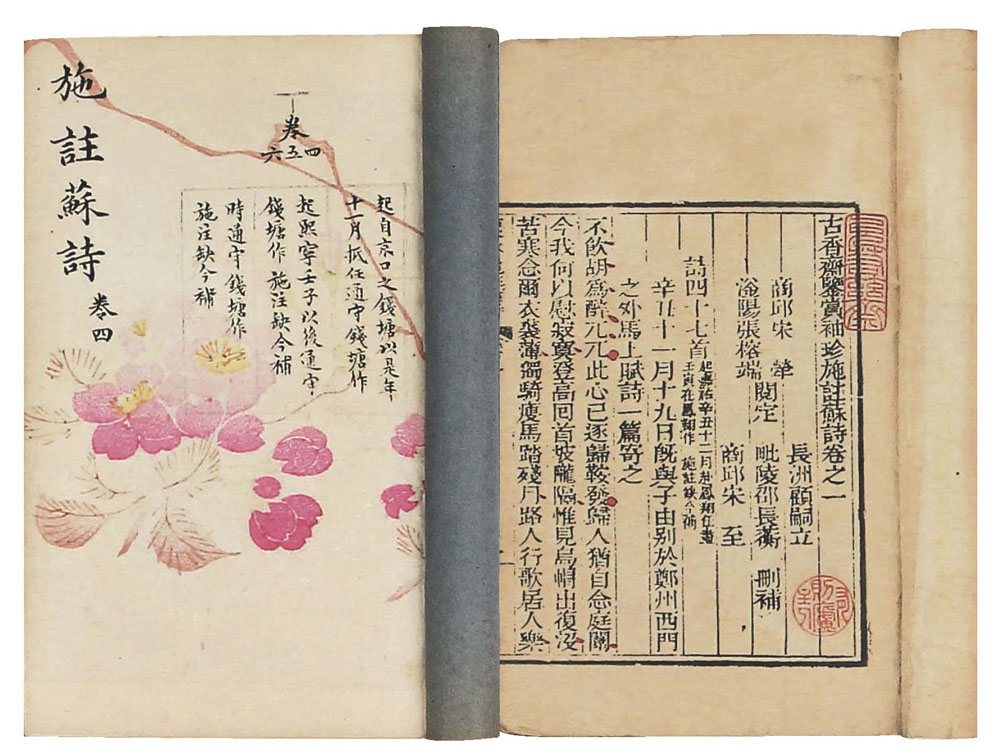 施註蘇詩 卷四
卷
四五六
起自京口之錢塘以是年
十一月抵任通守錢塘作
起熙寧壬子以後通守
錢塘作 施注缺今補
時通守錢塘作
施注缺今補
古香齋鑒賞袖珍施註蘇詩卷之一
長洲顧嗣立
商邱宋犖
閱定 毗陵邵長蘅 刪補
滏陽張榕端
商邱宋至
詩四十七首 起嘉祐辛丑十二月赴鳳翔任盡
壬寅在鳳翔作 施註缺今補
辛丑十一月十九日旣與子由別於鄭州西門
之外馬上賦詩一篇寄之
不飲胡為醉兀兀此心已逐歸鞍發歸人猶自念庭闈
今我何以慰寂寞登高回首坡隴隔惟見烏帽出復沒
苦寒念爾衣裘薄獨騎瘦馬踏殘月路人行歌居人樂